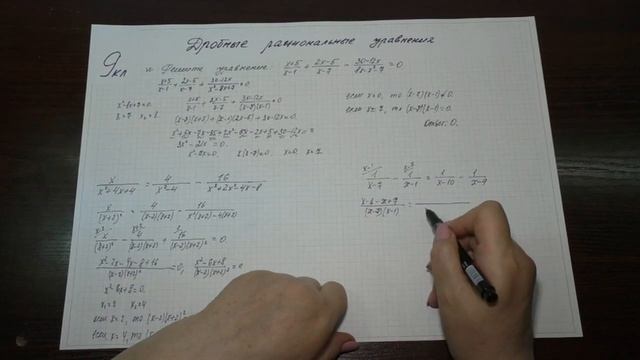 Дробные рациональные уравнения
9 кл
Решите уравнение: x+5/x-1 + 2x-5/x-7 - 30-12x/8x-x²-7 = 0
x+5/x-1 + 2x-5/x-7 + 30-12x/x²-8x+7 = 0
x+5/x-1 + 2x-5/x-7 + 30-12x/(x-7)(x-1) = 0
(x-7)(x+5) + (x-1)(2x-5) + 30-12x = 0
3x² - 21x = 0
x² - 7x = 0. x(x-7) = 0. x=0, x=7
если x=0, то (x-7)(x-1) ≠ 0.
если x=7, то (x-7)(x-1) = 0.
Ответ: 0.
x/x²+4x+4 = 4/x²-4 - 16/x³+2x²-4x-8
x/(x+2)² = 4/(x-2)(x+2) - 16/x²(x+2)-4(x+2)
x/(x+2)² - 4/(x-2)(x+2) + 16/(x-2)(x+2)² = 0.
x²-2x-4x-8+16/(x-2)(x+2)² = 0, x²-6x+8/(x-2)(x+2)² = 0
x²-6x+8=0.
x₁=2 x₂=4
если x=2, то (x-2)(x+2)²
если x=4, то
1/x-7 - 1/x-1 = 1/x-10 - 1/x-9
(x-7)(x-1) =